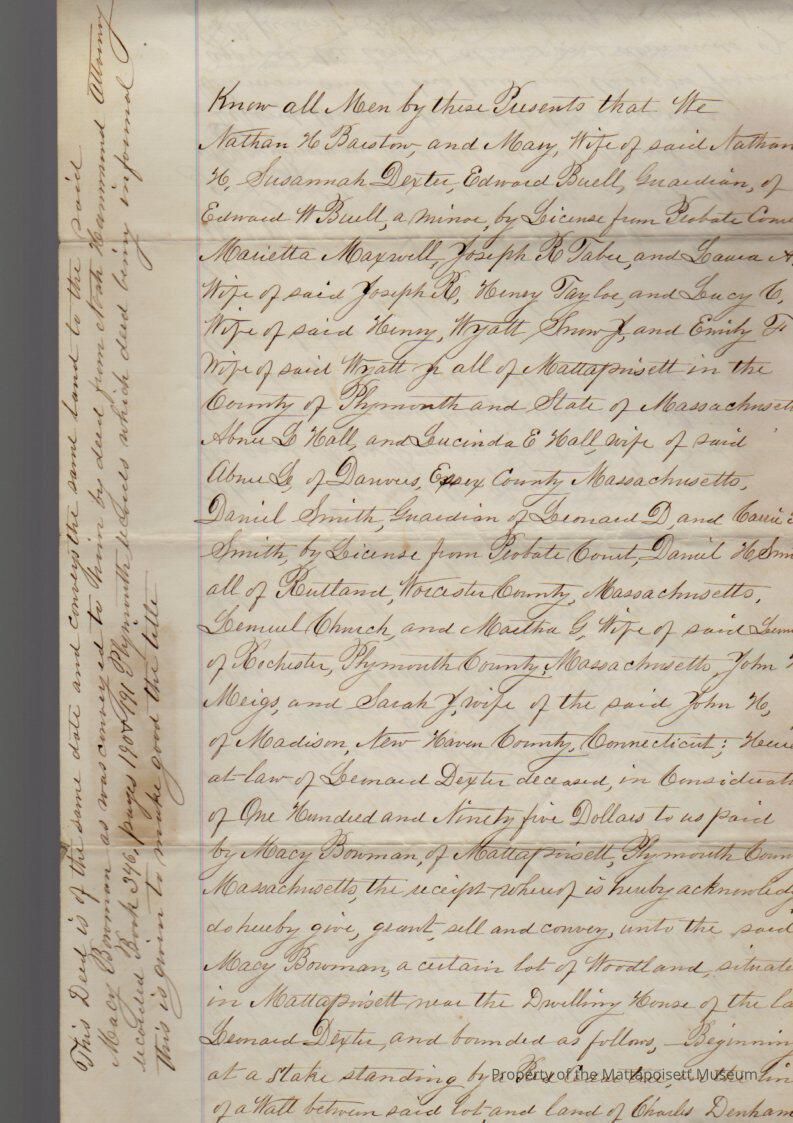 Know all Men by these Presents that We
Nathan H Barstow, and Mary, Wife of said Nathan
H, Susannah Dexter, Edward Buell, Guardian, of
Edward W Buell, a minor, by License from Probate Cour
Marietta Maxwell, Joseph R Taber, and Laura A,
Wife of said Joseph R, Henry Taylor, and Lucy C,
Wife of said Henry, Wyatt Snow Jr, and Emily F
Wife of said Wyatt Jr all of Mattapoisett in the
County of Plymouth and State of Massachusett
Abner L Hall, and Lucinda E Hall, wife of said
Abner L, of Danvers, Essex County Massachusetts,
Daniel Smith, Guardian of Leonard D, and Carrie
Smith, by License from Probate Court, Daniel H. Sm
all of Rutland, Worcester County, Massachusetts,
Lemuel Church, and Martha G, Wife of said Lem
of Rochester, Plymouth County, Massachusetts John H
Meigs, and Sarah J, wife of the said John H,
of Madison, New Haven County, Connecticut; Heirs
at-law of Leonard Dexter deceased, in Considerati
of One Hundred and Ninety five Dollars to us paid
by Macy Bowman, of Mattapoisett, Plymouth Coun
Massachusetts, the receipt whereof is hereby acknowledg
do hereby give, grant, sell and convey, unto the said
Macy Bowman, a certain lot of Woodland, situate
in Mattapoisett near the Dwelling House of the la
Leonard Dexter, and bounded as follows, - Beginning
at a Stake standing by a in
of a Wall between said lot and land of Charles Denham
This Deed is of the same date and conveys the same land to the said
Macy Bowman as was conveyed to him by deed from Noah Hammond Attorney
recorded Book 346, pages 190 & 191 Plymouth records which deed being informal
this is given to make good the title
Property of the Mattapoisett Museum